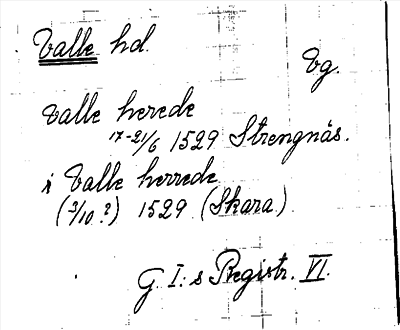 Valle hd.
Vg.
Valle herede
17-21/6 1529 Strengnäs.
i Valle herrede
(3/10 ?) 1529 (Skara.)
G. I:s Registr. VI.